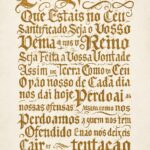 Que Estais no Céu
Santificado Seja o Vosso
Venha a nós o Reino
Seja Feita a Vossa Vontade
Assim na Terra Como no Céu
O pão nosso de Cada dia
nos dai hoje Perdoai as
nossas ofensas Assim como nós
Perdoamos a quem nos tem
Ofendido E não nos deixeis
Cair tentação